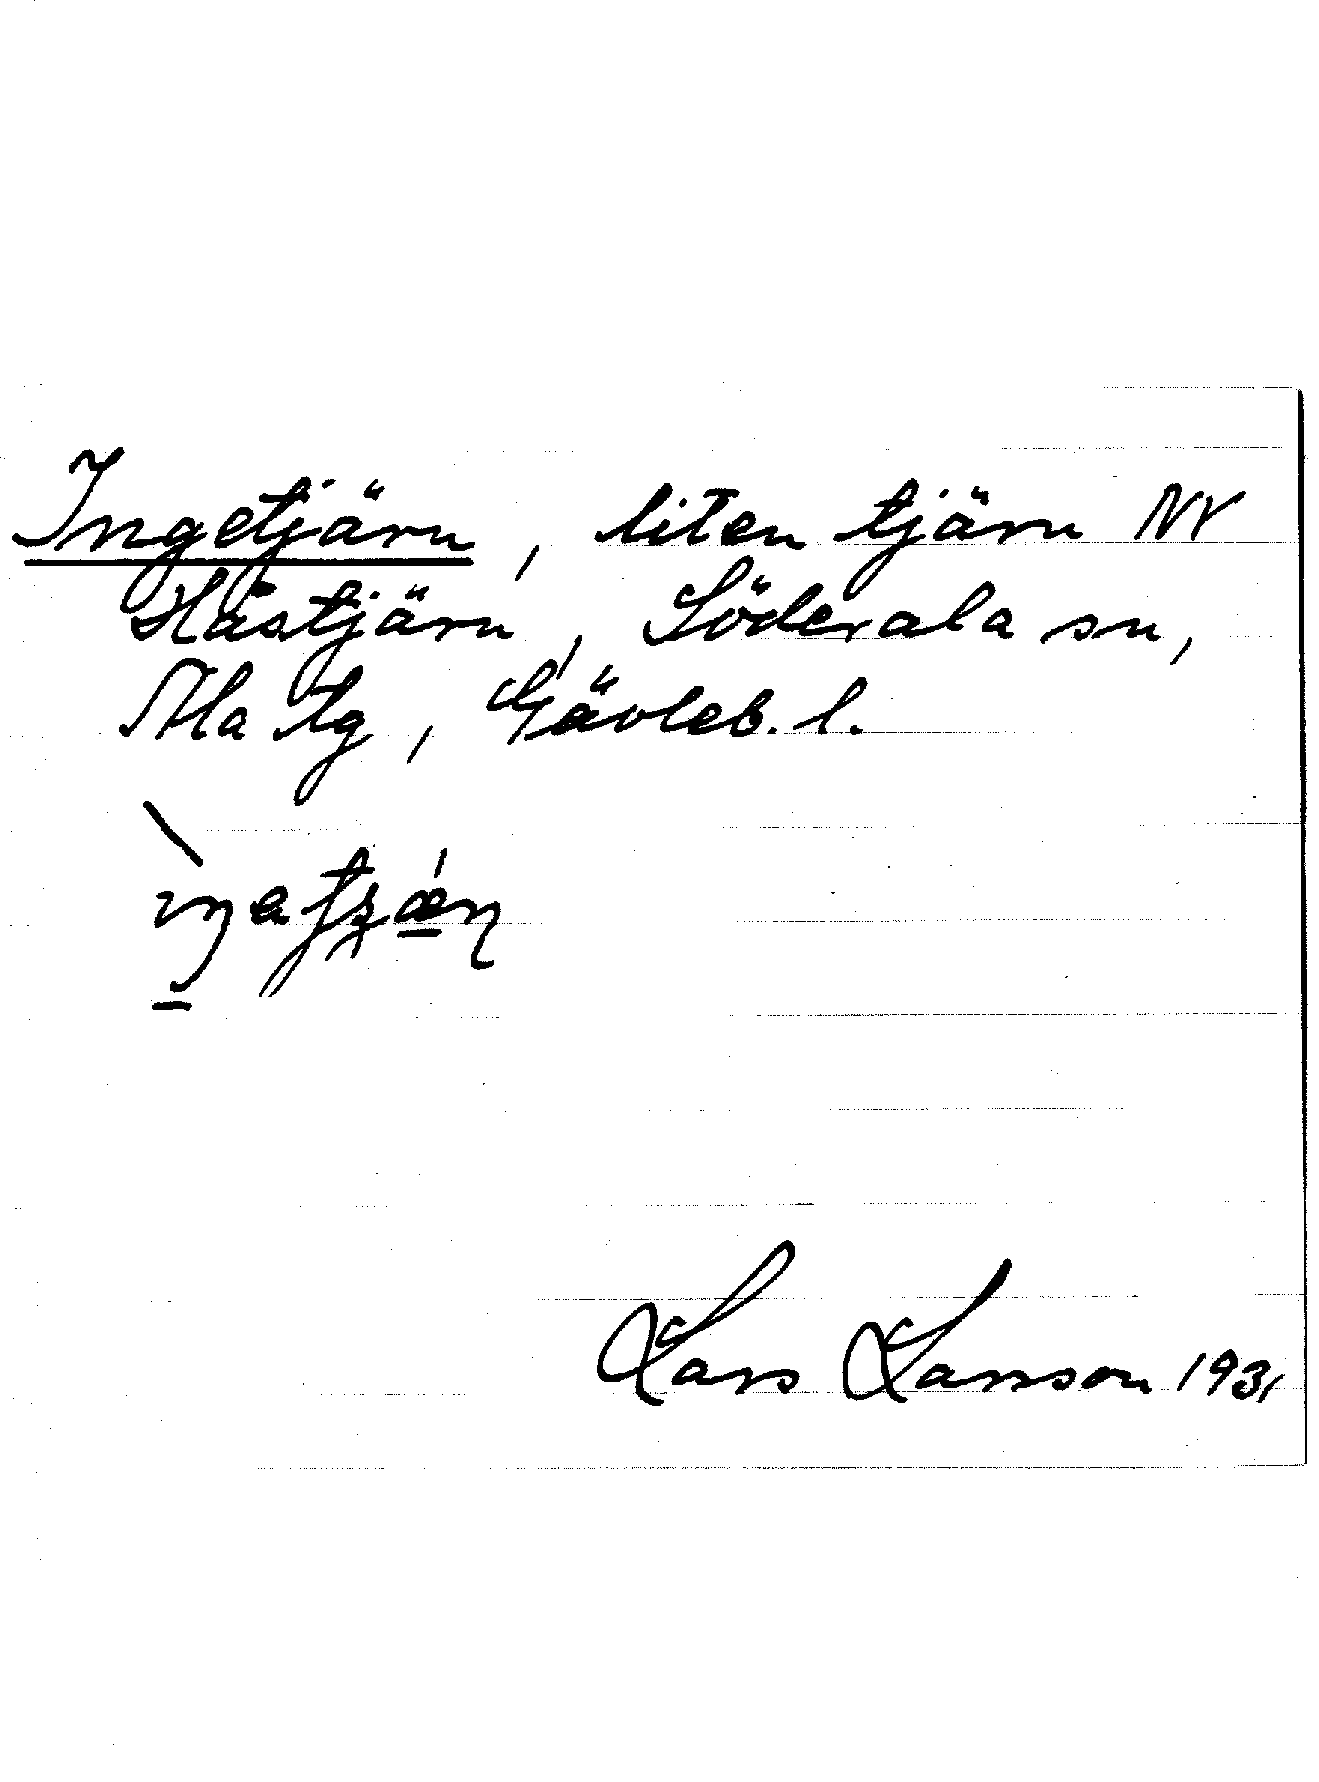 Ingetjärn, liten tjärn NV
Hästjärn, Söderala sn,
Ala tg, Gävleb. l.
Lars Larsson 1931